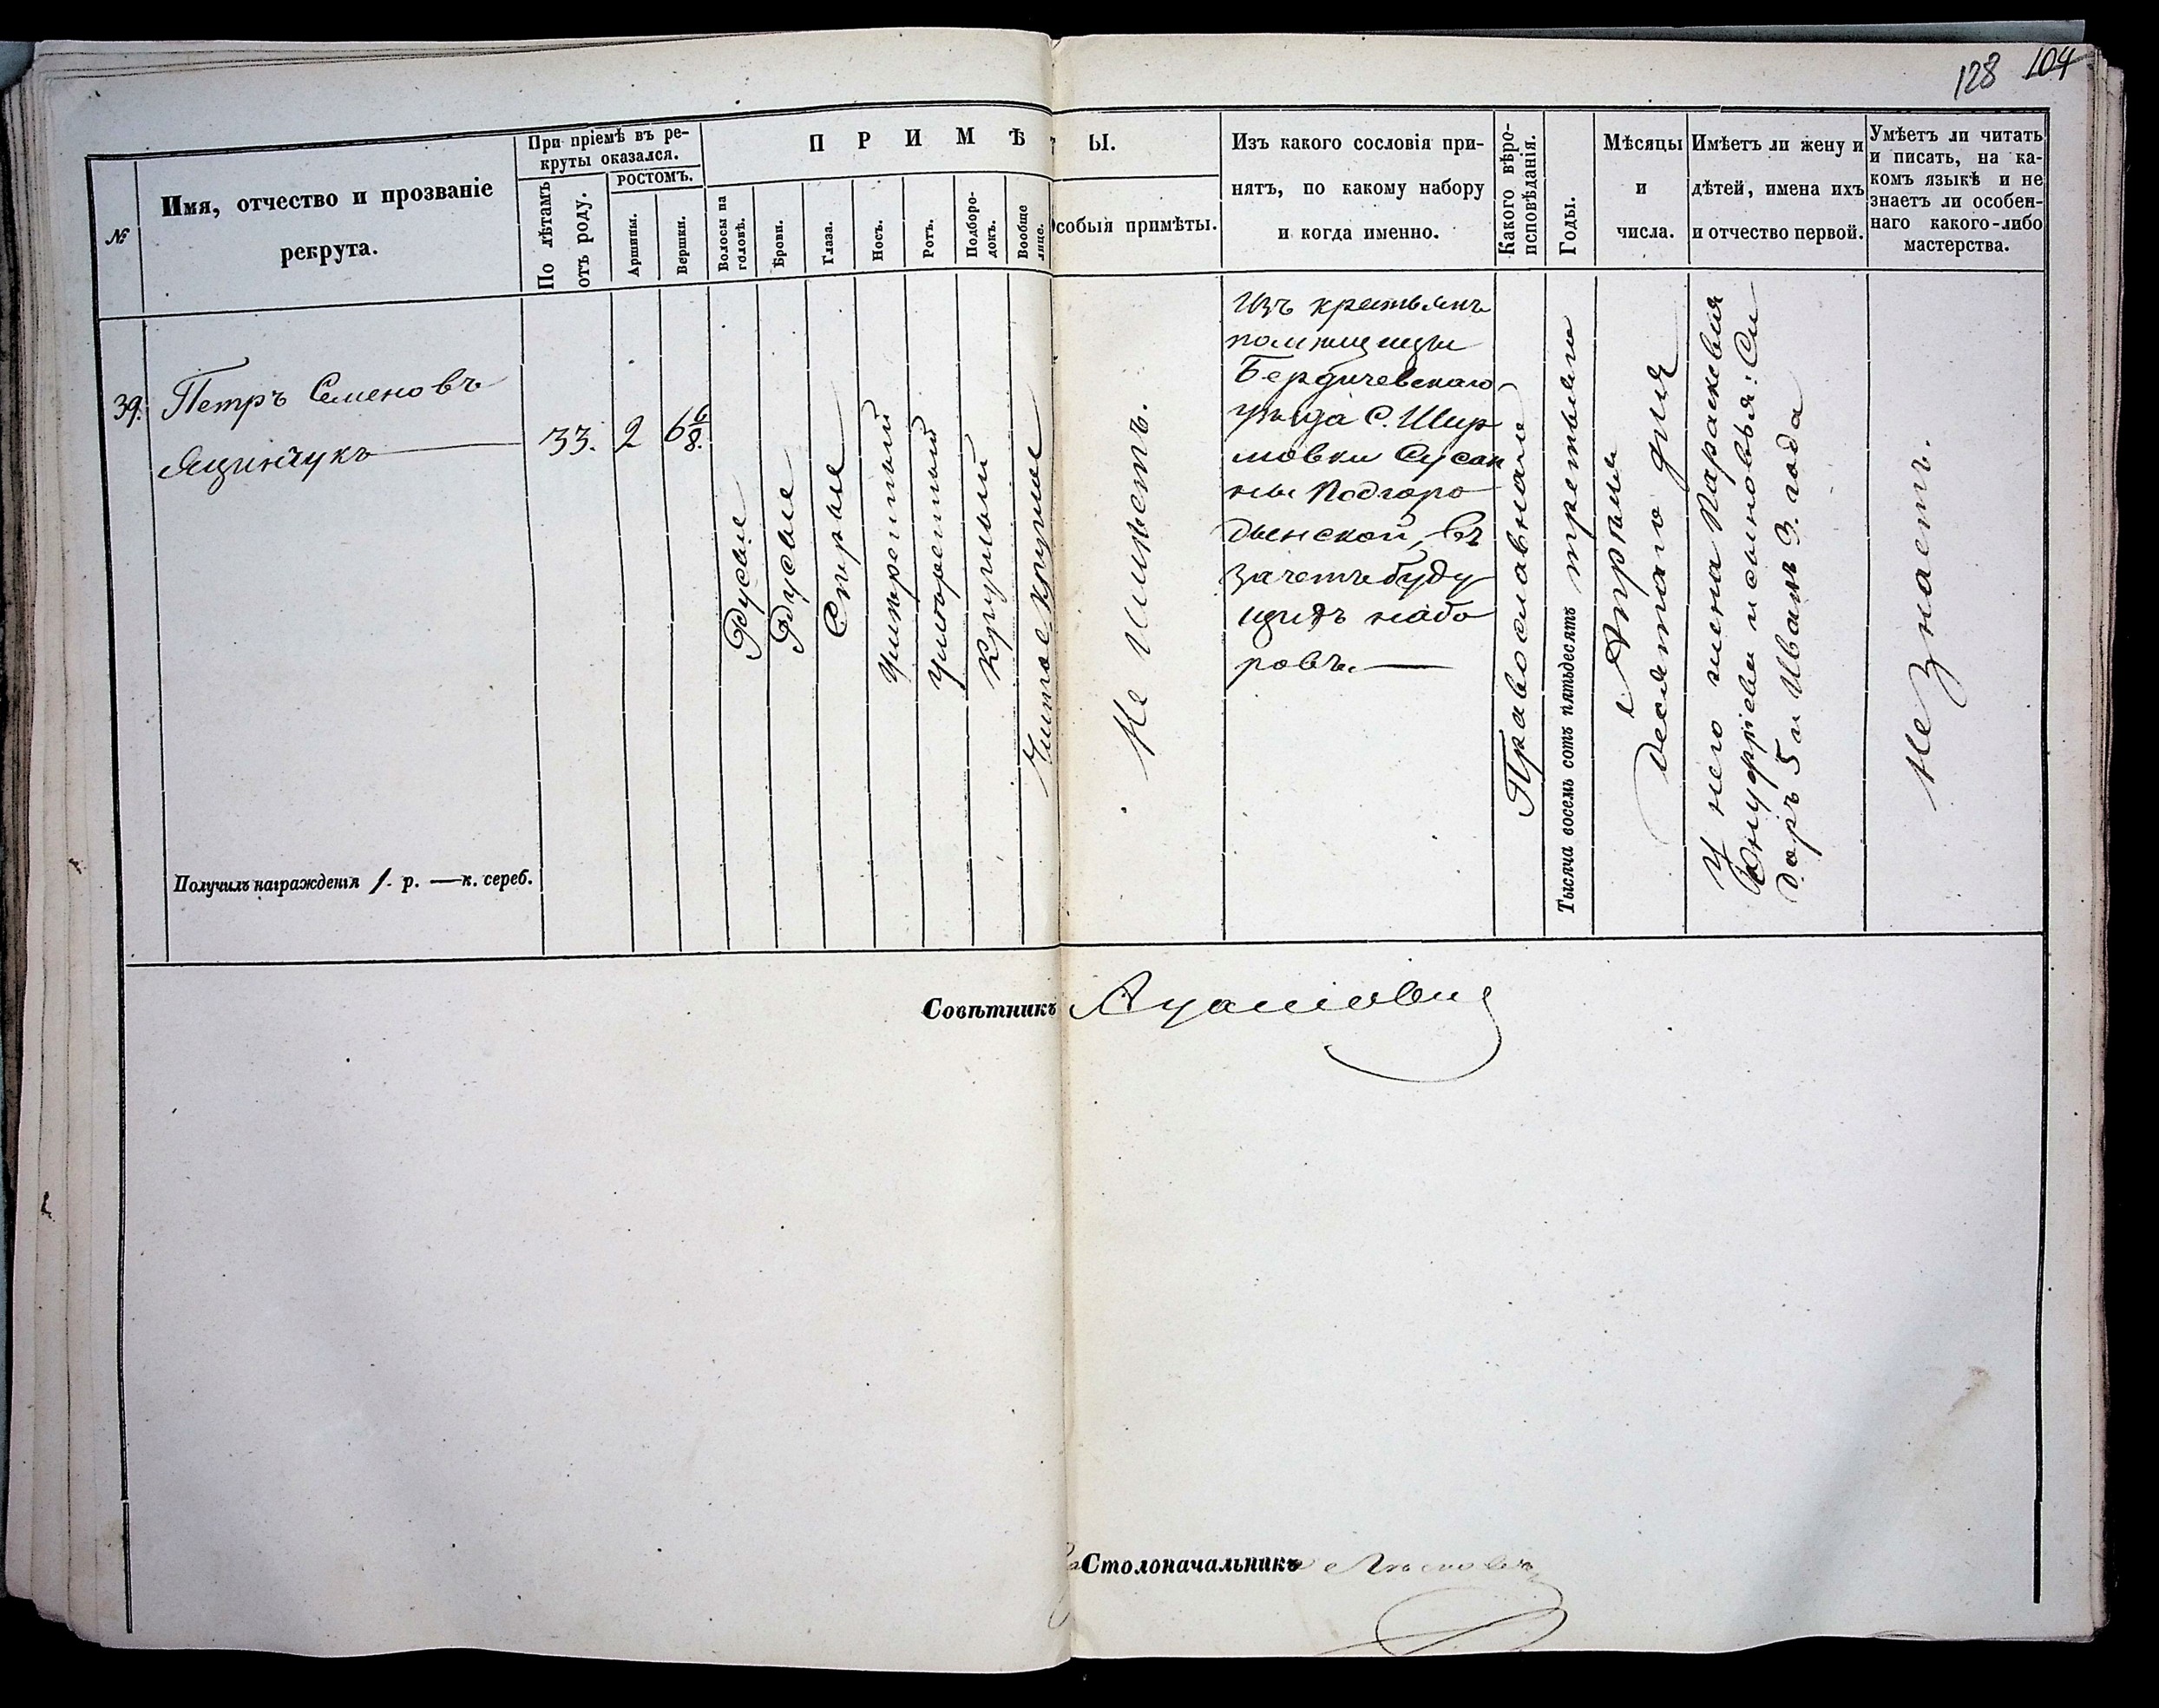 128 104
№
Имя, отчество и прозваніе
рекрута.
При пріемѣ въ ре-
круты оказался.
По лѣтамъ
отъ роду.
РОСТОМЪ.
Аршины.
Вершки.
ПРИМѢ
Ы.
Волосы на
головѣ.
Брови.
Глаза.
Носъ.
Ротъ.
Подборо-
докъ.
Вообще
лице.
Особыя примѣты.
Изъ какого сословія при-
нятъ, по какому набору
и когда именно.
Какого вѣро-
исповѣданія.
Годы.
Мѣсяцы
и
числа.
Имѣетъ ли жену и
дѣтей, имена ихъ
и отчество первой.
Умѣетъ ли читать
и писать, на ка-
комъ языкѣ и не
знаетъ ли особен-
наго какого-либо
мастерства.
39.
Петръ Семеновъ
Ящинчукъ
33.
2
6 6/8.
Русые
Русые
Сѣрые
Умѣренный
Умѣренный
Круглый
Чистое круглое
Не имѣетъ.
Изъ крестьянъ
помѣщицы
Бердичевскаго
уѣзда С. Шир
мовки Сусан
ны Подгоро
денской, въ
зачетъ буду
щихъ набо
ровъ.
Православнаго
Тысяча восемь сотъ пятьдесятъ третьяго
Апрѣля
десятаго дня
У него жена Параскевия
Онуфріева и сыновья: Си
доръ 5 и Иванъ 3. года
Не знаетъ.
Получилъ награжденія 1. р. — к. сереб.
Совѣтникъ
За Столоначальника